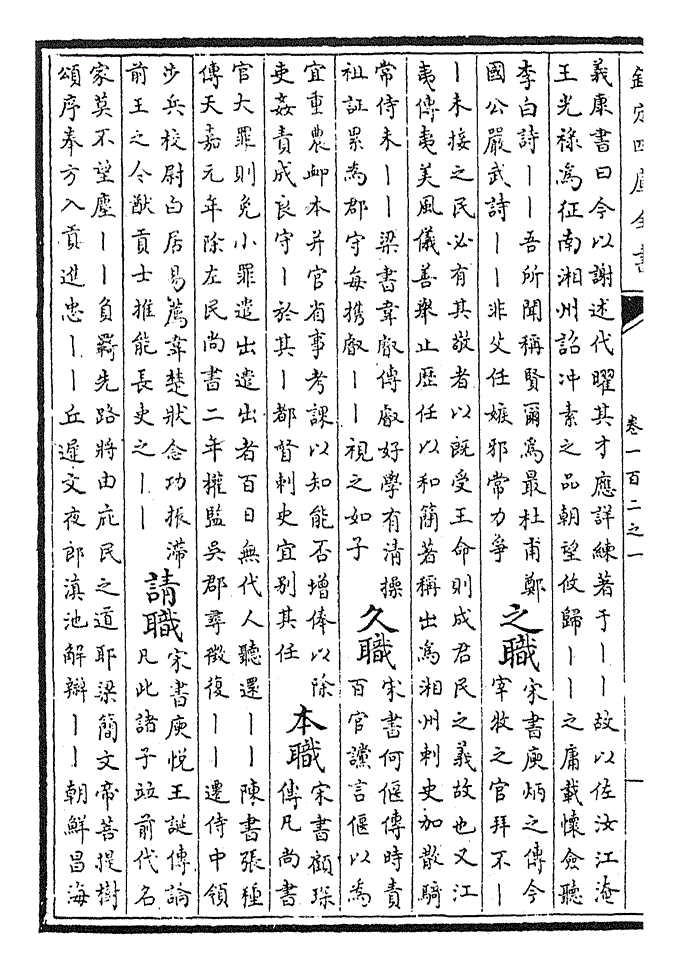 欽定四庫全書
卷一百二之一
義康書曰今以謝述代曜其才應詳練著于丨丨故以佐汝江淹
王光祿為征南湘州詔沖素之品朝望攸歸丨丨之庸載懷僉聽
李白詩丨丨吾所聞稱賢爾為最杜甫鄭
國公嚴武詩丨丨非父任嫉邪常力爭
之職
宋書庾炳之傳今
宰牧之官拜不丨
丨未接之民必有其敬者以既受王命則成君民之義故也又江
夷傳夷美風儀善舉止歷任以和簡著稱出為湘州刺史加散騎
常侍未丨丨梁書韋叡傳叡好學有清操
祖証累為郡守每攜叡丨丨視之如子
久職
宋書何偃傳時責
百官讜言偃以為
宜重農卹本并官省事考課以知能否增俸以除
吏姦責成良守丨於其丨都督刺史宜別其任
本職
宋書顧琛
傳凡尚書
官大罪則免小罪遣出遣出者百日無代人聽還丨丨陳書張種
傳天嘉元年除左民尚書二年權監吳郡尋徵復丨丨遷侍中領
步兵校尉白居易薦韋楚狀念功振滯
前王之令猷貢士推能長吏之丨丨
請職
宋書庾悅王誕傳論
凡此諸子竝前代名
家莫不望塵丨丨負羈先路將由庇民之道耶梁簡文帝菩提樹
頌序奉方入貢進忠丨丨丘遲文夜郎滇池解辮丨丨朝鮮昌海